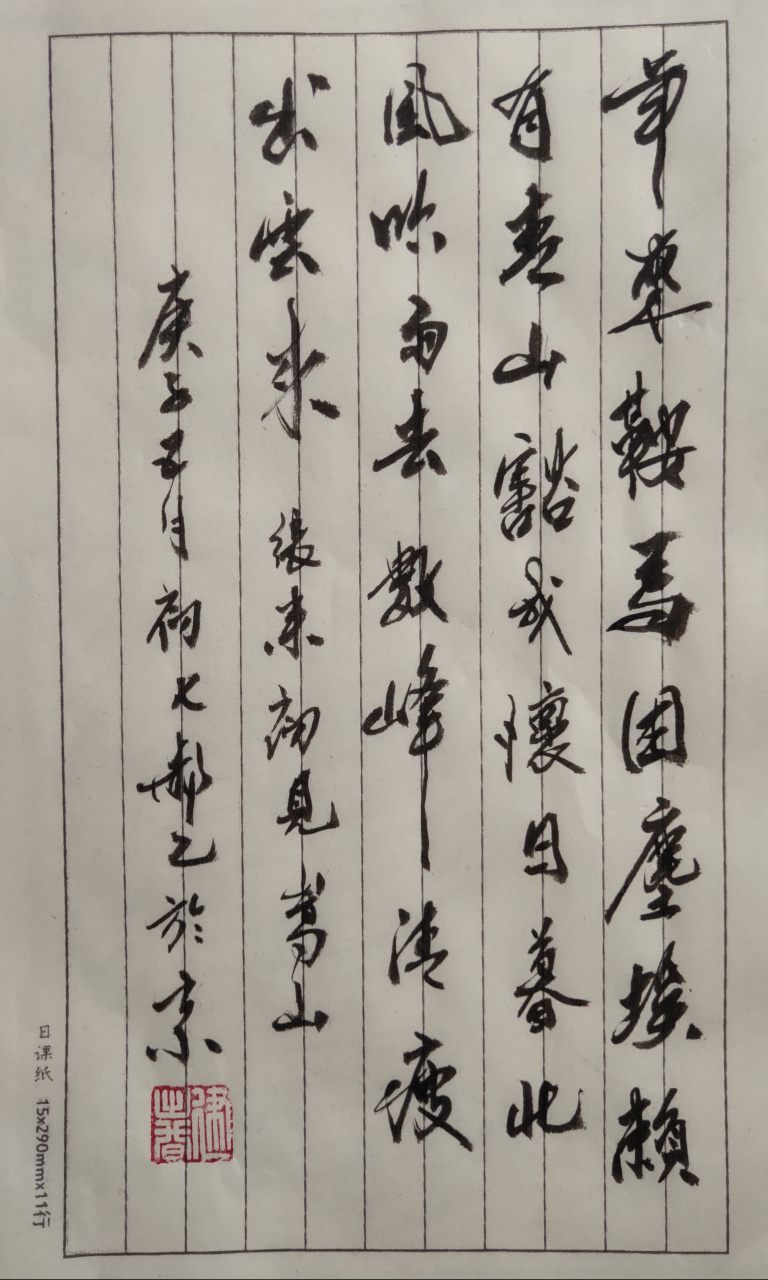 年來鞍馬困塵埃賴
有青山豁我懷日暮北
風吹雨去數峰清瘦
出雲來 張耒初見嵩山
庚子五月初七於京
日课纸 15x290mmx11行